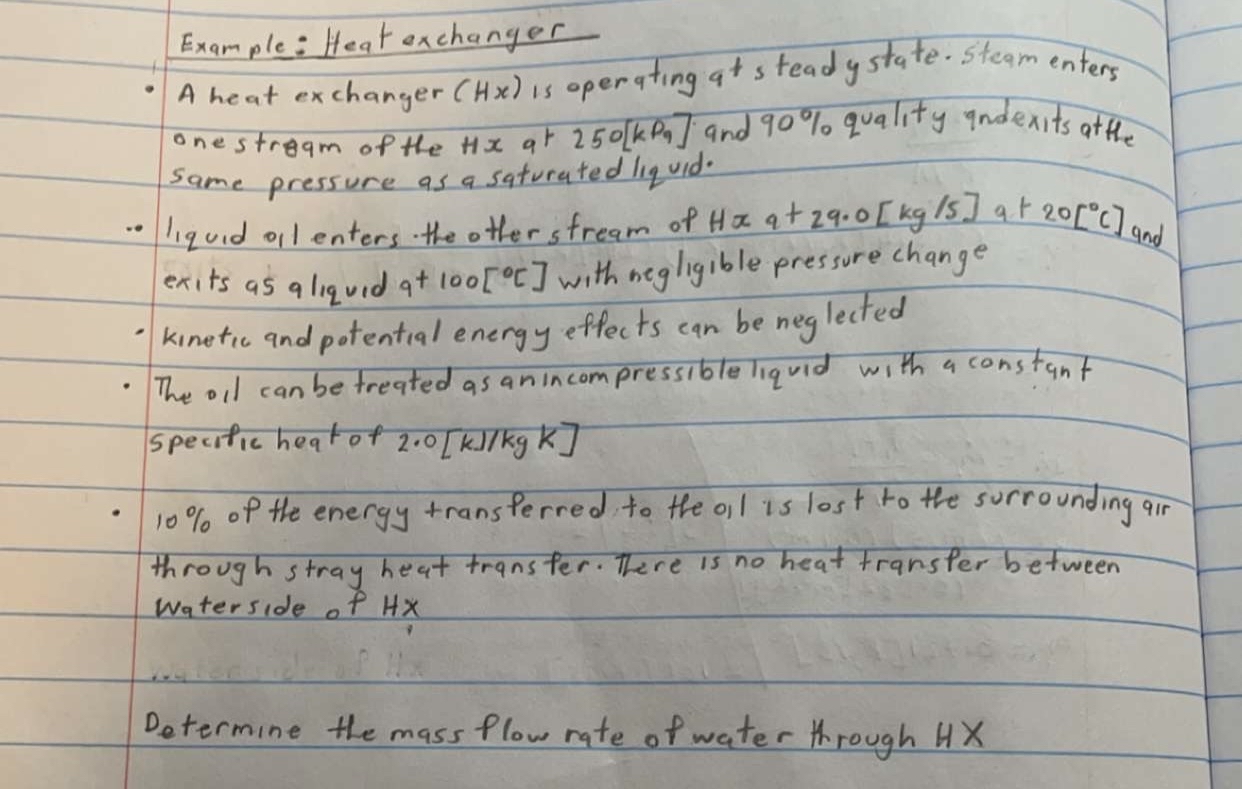 Example: Heat exchanger
• A heat exchanger (Hx) is operating at steady state. Steam enters
one stream of the Hx at 250[kPa] and 90% quality and exits at the
same pressure as a saturated liquid.
•• liquid oil enters the other stream of Hx at 29.0[kg/s] at 20[°C] and
exits as a liquid at 100[°C] with negligible pressure change
• kinetic and potential energy effects can be neglected
• The oil can be treated as an incompressible liquid with a constant
specific heat of 2.0[kJ/kg K]
• 10% of the energy transferred to the oil is lost to the surrounding air
through stray heat transfer. There is no heat transfer between
Waterside of HX
Determine the mass flow rate of water through HX